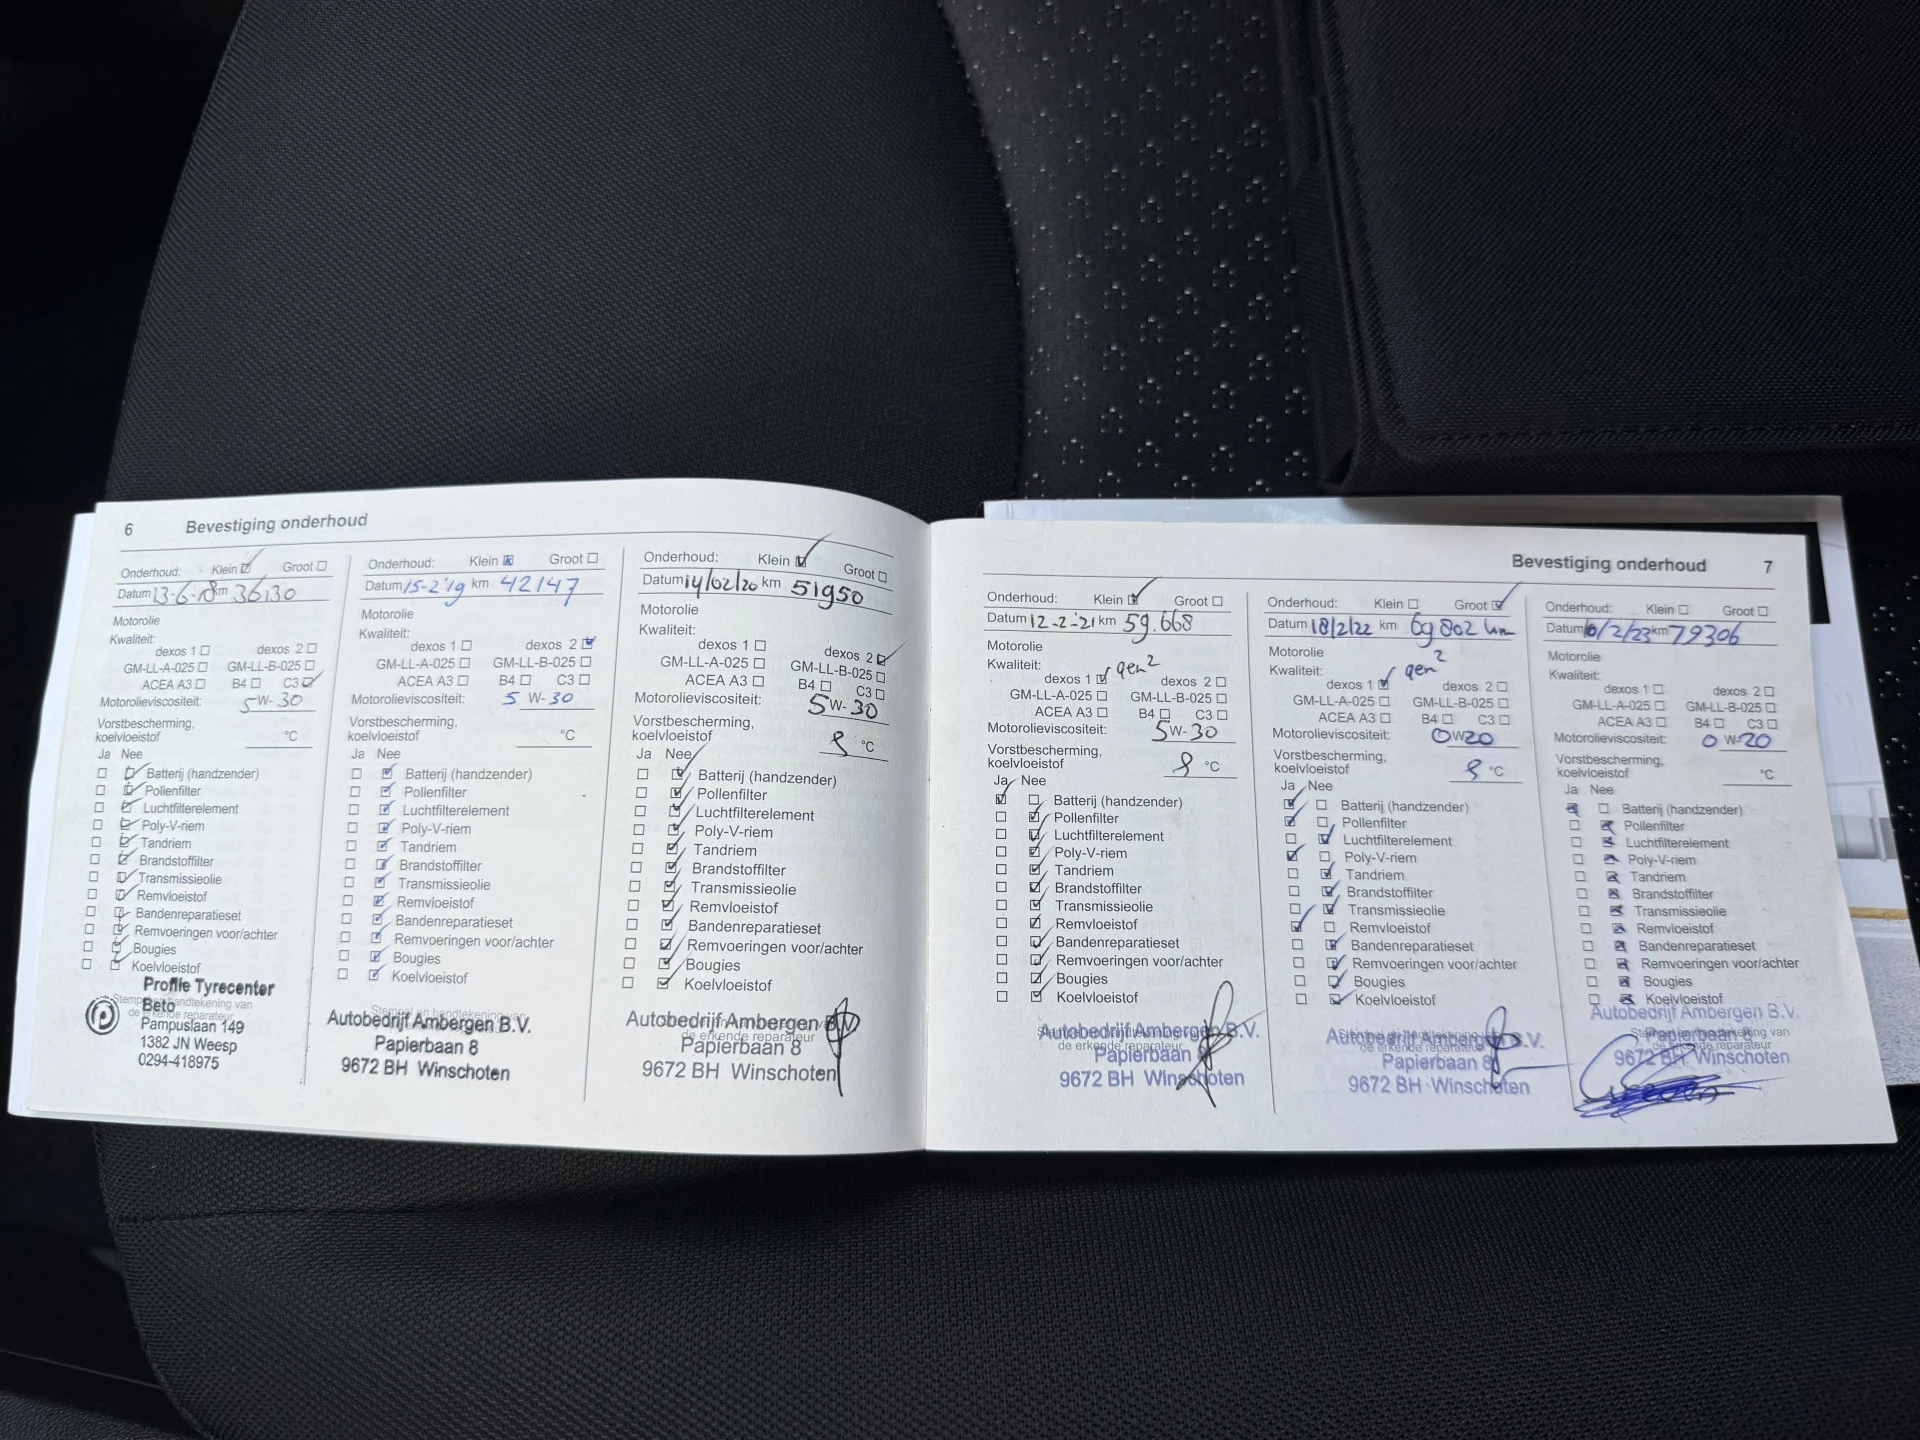 6 Bevestiging onderhoud
Onderhoud: Klein ☑ Groot ☐
Datum 13-6-18 km 36130
Motorolie
Kwaliteit:
dexos 1 ☐ dexos 2 ☐
GM-LL-A-025 ☐ GM-LL-B-025 ☐
ACEA A3 ☐ B4 ☐ C3 ☑
Motorolieviscositeit: 5 W- 30
Vorstbescherming,
koelvloeistof °C
Ja Nee
☐ ☑ Batterij (handzender)
☐ ☑ Pollenfilter
☐ ☑ Luchtfilterelement
☐ ☑ Poly-V-riem
☐ ☑ Tandriem
☐ ☑ Brandstoffilter
☐ ☑ Transmissieolie
☐ ☑ Remvloeistof
☐ ☑ Bandenreparatieset
☐ ☑ Remvoeringen voor/achter
☐ ☑ Bougies
☐ ☑ Koelvloeistof
Stempel en handtekening van
de erkende reparateur
Profile Tyrecenter
Beto
Pampuslaan 149
1382 JN Weesp
0294-418975
Onderhoud: Klein ☒ Groot ☐
Datum 15-2'19 km 42147
Motorolie
Kwaliteit:
dexos 1 ☐ dexos 2 ☑
GM-LL-A-025 ☐ GM-LL-B-025 ☐
ACEA A3 ☐ B4 ☐ C3 ☐
Motorolieviscositeit: 5 W- 30
Vorstbescherming,
koelvloeistof °C
Ja Nee
☐ ☑ Batterij (handzender)
☐ ☑ Pollenfilter
☐ ☑ Luchtfilterelement
☐ ☑ Poly-V-riem
☐ ☑ Tandriem
☐ ☑ Brandstoffilter
☐ ☑ Transmissieolie
☐ ☑ Remvloeistof
☐ ☑ Bandenreparatieset
☐ ☑ Remvoeringen voor/achter
☐ ☑ Bougies
☐ ☑ Koelvloeistof
Stempel en handtekening van
Autobedrijf Ambergen B.V.
Papierbaan 8
9672 BH Winschoten
Onderhoud: Klein ☑ Groot ☐
Datum 14/02/20 km 51950
Motorolie
Kwaliteit:
dexos 1 ☐ dexos 2 ☑
GM-LL-A-025 ☐ GM-LL-B-025 ☐
ACEA A3 ☐ B4 ☐ C3 ☐
Motorolieviscositeit: 5 W- 30
Vorstbescherming,
koelvloeistof °C
Ja Nee
☐ ☑ Batterij (handzender)
☐ ☑ Pollenfilter
☐ ☑ Luchtfilterelement
☐ ☑ Poly-V-riem
☐ ☑ Tandriem
☐ ☑ Brandstoffilter
☐ ☑ Transmissieolie
☐ ☑ Remvloeistof
☐ ☑ Bandenreparatieset
☐ ☑ Remvoeringen voor/achter
☐ ☑ Bougies
☐ ☑ Koelvloeistof
de erkende reparateur
Autobedrijf Ambergen B.V.
Papierbaan 8
9672 BH Winschoten
Bevestiging onderhoud 7
Onderhoud: Klein ☑ Groot ☐
Datum 12-2-'21 km 59.668
Motorolie
Kwaliteit: gen2
dexos 1 ☑ dexos 2 ☐
GM-LL-A-025 ☐ GM-LL-B-025 ☐
ACEA A3 ☐ B4 ☐ C3 ☐
Motorolieviscositeit: 5 W- 30
Vorstbescherming,
koelvloeistof °C
Ja Nee
☑ ☐ Batterij (handzender)
☐ ☑ Pollenfilter
☐ ☑ Luchtfilterelement
☐ ☑ Poly-V-riem
☐ ☑ Tandriem
☐ ☑ Brandstoffilter
☐ ☑ Transmissieolie
☐ ☑ Remvloeistof
☐ ☑ Bandenreparatieset
☐ ☑ Remvoeringen voor/achter
☐ ☑ Bougies
☐ ☑ Koelvloeistof
de erkende reparateur
Autobedrijf Ambergen B.V.
Papierbaan 8
9672 BH Winschoten
Onderhoud: Klein ☐ Groot ☑
Datum 18/2/22 km 69802 km
Motorolie
Kwaliteit: gen2
dexos 1 ☑ dexos 2 ☐
GM-LL-A-025 ☐ GM-LL-B-025 ☐
ACEA A3 ☐ B4 ☐ C3 ☐
Motorolieviscositeit: 0 W 20
Vorstbescherming,
koelvloeistof °C
Ja Nee
☑ ☐ Batterij (handzender)
☑ ☐ Pollenfilter
☐ ☑ Luchtfilterelement
☑ ☐ Poly-V-riem
☐ ☑ Tandriem
☐ ☑ Brandstoffilter
☐ ☑ Transmissieolie
☑ ☐ Remvloeistof
☐ ☑ Bandenreparatieset
☐ ☑ Remvoeringen voor/achter
☐ ☑ Bougies
☐ ☑ Koelvloeistof
de erkende reparateur
Autobedrijf Ambergen B.V.
Papierbaan 8
9672 BH Winschoten
Onderhoud: Klein ☐ Groot ☐
Datum 10/2/23 km 79306
Motorolie
Kwaliteit:
dexos 1 ☐ dexos 2 ☐
GM-LL-A-025 ☐ GM-LL-B-025 ☐
ACEA A3 ☐ B4 ☐ C3 ☐
Motorolieviscositeit: 0 W- 20
Vorstbescherming,
koelvloeistof °C
Ja Nee
☒ ☐ Batterij (handzender)
☐ ☒ Pollenfilter
☐ ☒ Luchtfilterelement
☐ ☒ Poly-V-riem
☐ ☒ Tandriem
☐ ☒ Brandstoffilter
☐ ☒ Transmissieolie
☐ ☒ Remvloeistof
☐ ☒ Bandenreparatieset
☐ ☒ Remvoeringen voor/achter
☐ ☒ Bougies
☐ ☒ Koelvloeistof
Stempel en handtekening van
de erkende reparateur
Autobedrijf Ambergen B.V.
Papierbaan 8
9672 BH Winschoten